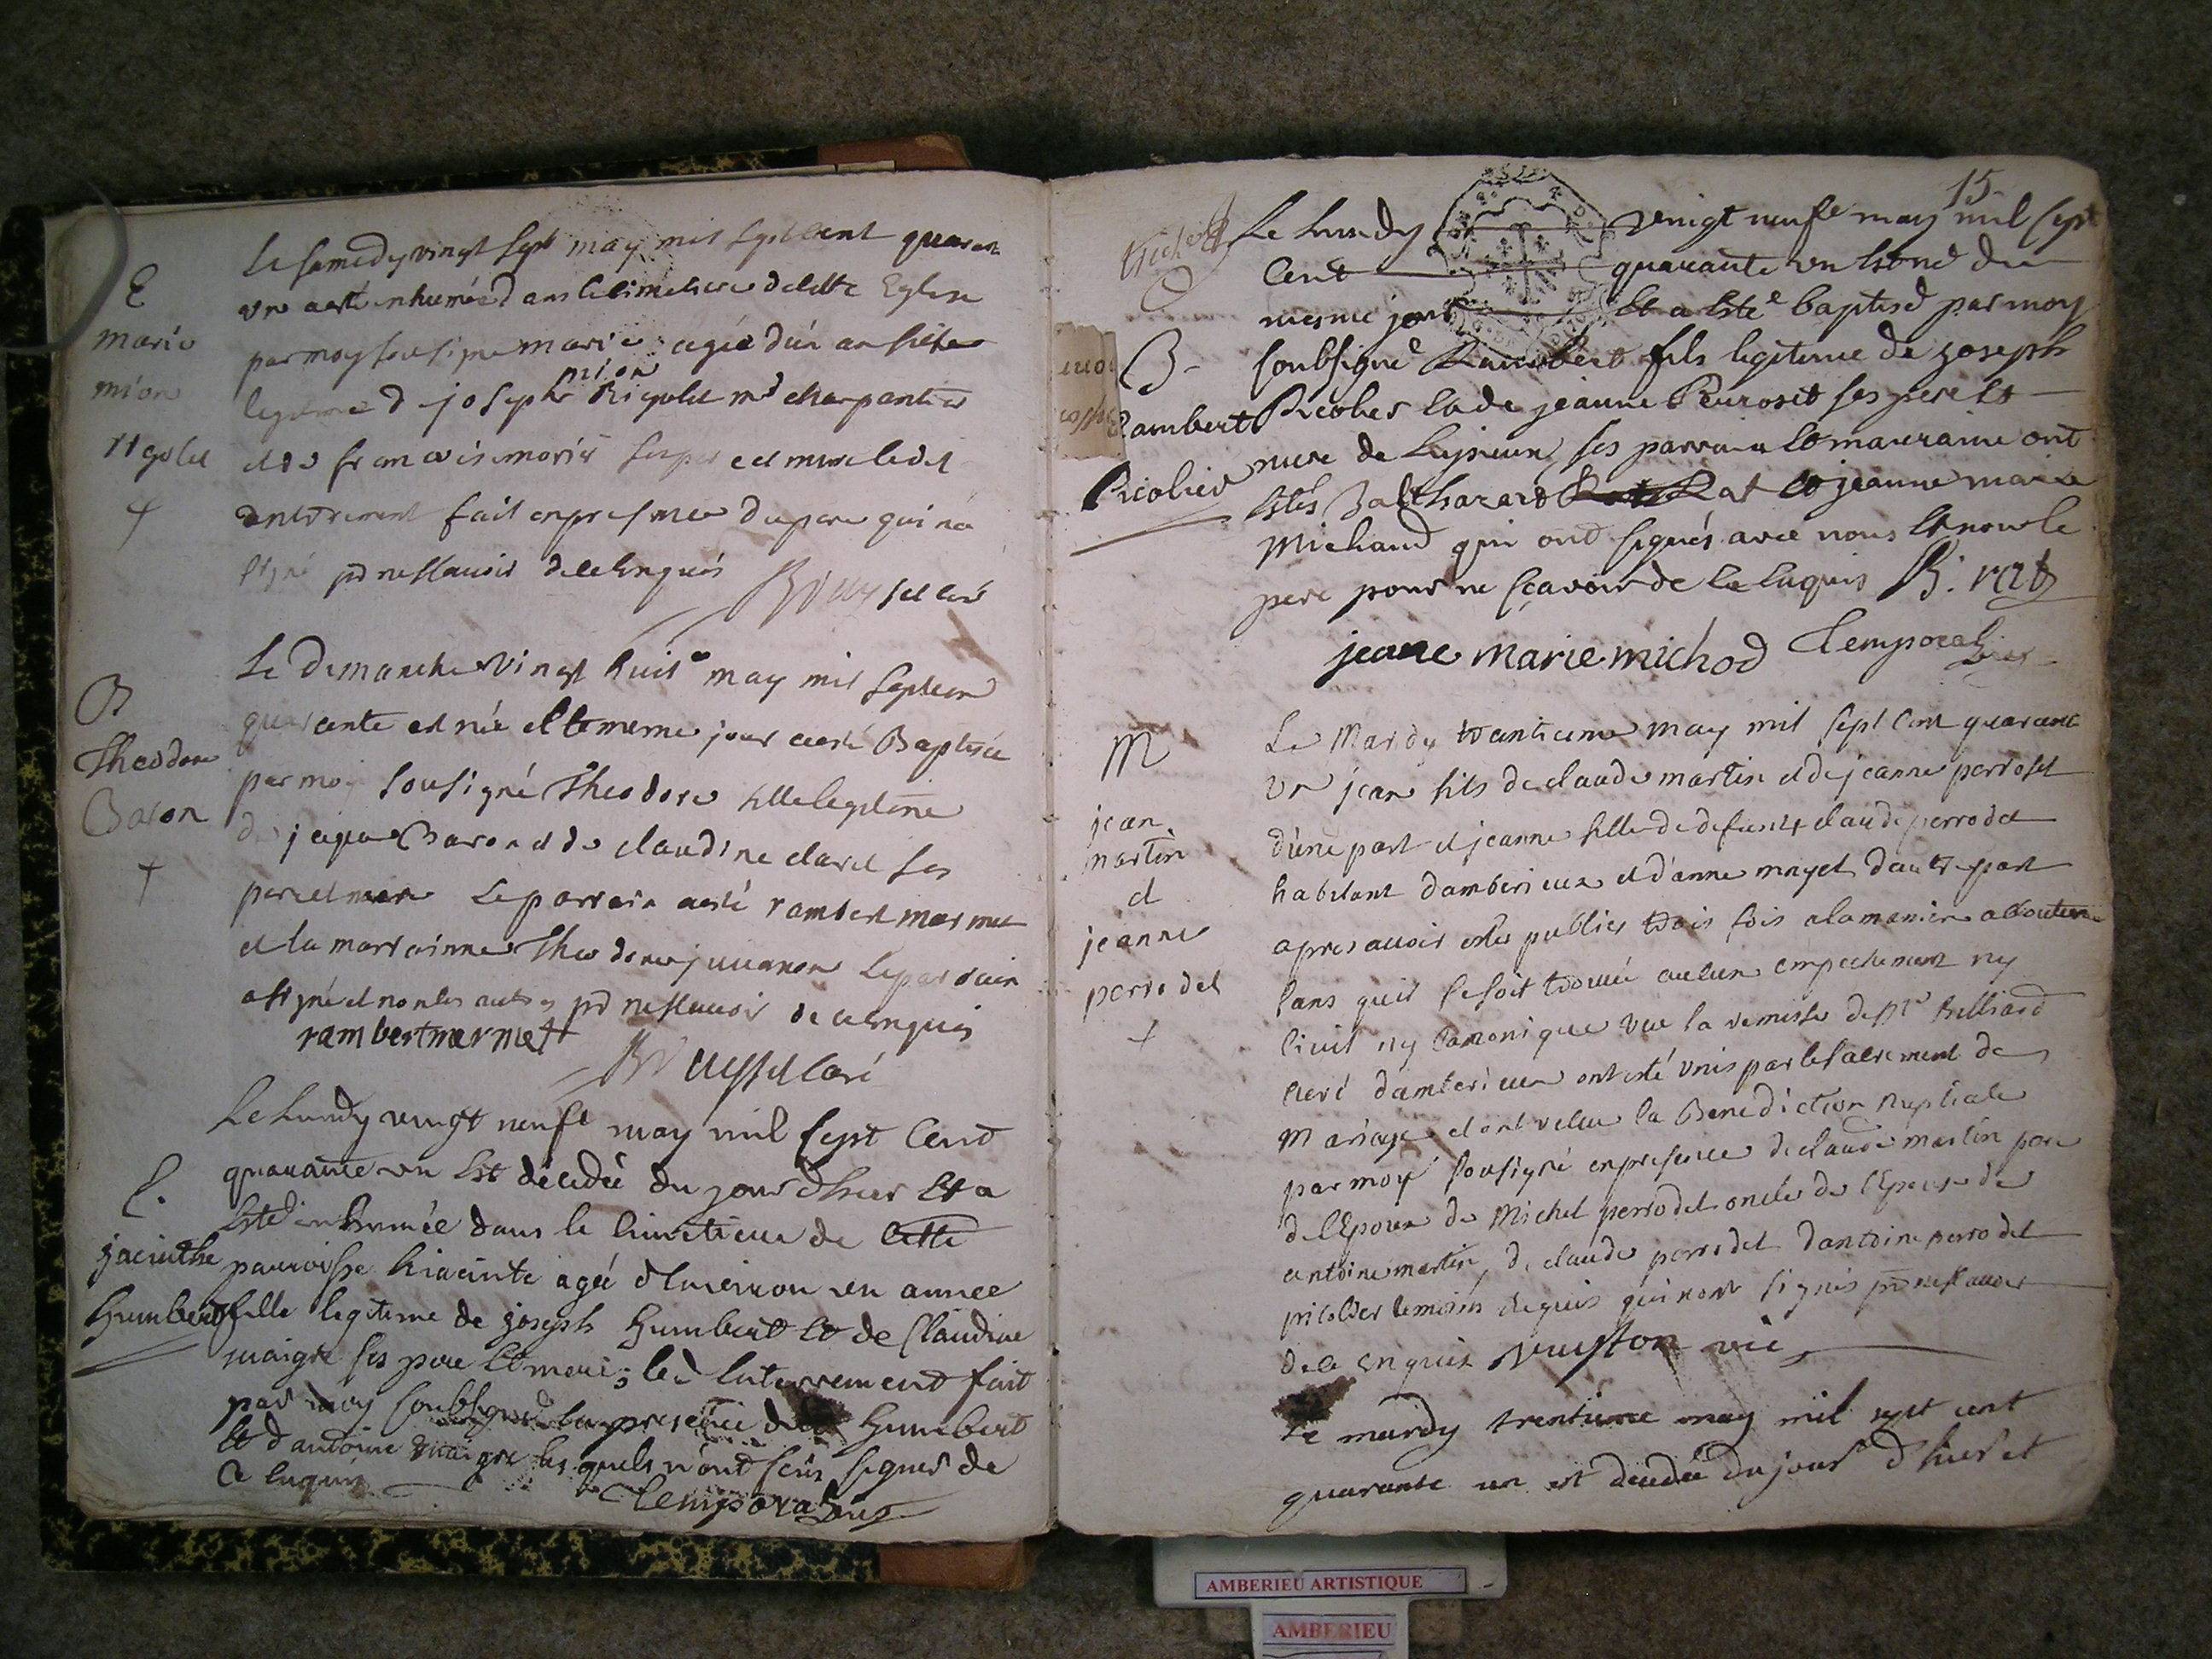 E
marie
mion
rigolet
Le samedy vingt sept may mil sept cent quarante
un a esté inhumée dans le cimetiere de cette Eglise
par moy sousigné marie agée d'un an fille
legitime de joseph mion Rigolet md charpentier
et de francoise ses pere et mere ledit
enterrement fait en presence du pere qui n'a
signé pr ne scavoir de ce enquis
B
Theodore
Baron
Le Dimanche vingt huit may mil sept cent
quarante est née et le meme jour a esté Baptisée
par moy sousigné Theodore fille legitime
de jaque Baron et de claudine claret ses
pere et mere Le parrain a esté rambert marmet
et la marrainne Theodore juvanon Le parrain
a signé et non les autres pr ne scavoir de ce enquis
rambert marmett
E.
jacinthe
humbert
Le Lundy vingt neufe may mil sept Cent
quarante un Est décedée du jour d'hier Et a
Esté inhumée dans le cimetiere de Cette
parroisse hiacinte agée d'environ un année
fille legitime de joseph humbert Et de Claudine
maigre ses pere Et mere; led Enterrement fait
par moy soubsigné En presence dud humbert
Et d'antoine maigre lesquels n'ont sceus signer de
ce Enquis
Temporal vic
15
B
Rambert
Pricolier
Le Lundy vingt neufe may mil sept
Cent quarante un Est né du
mesme jour Et a Esté baptisé par moy
soubsigné Rambert fils legitime de joseph
Pricolier Et de jeanne Peuroset ses pere Et
mere de ses parrain Et marraine ont
Estés Balthazard Rat Et jeanne marie
Michaud qui ont signés avec nous Et non le
pere pour ne sçavoir de ce Enquis B. rat
jeane marie michod Temporal vic
M
jean
martin
et
jeanne
perrodet
Le Mardy trantieme may mil sept cent quarante
un jean fils de claude martin et de jeanne perroset
d'une part et jeanne fille de defunt claude perrodet
habitant d'amberieux et d'anne d'autre part
apres avoir estés publies trois fois a la maniere accoutumé
sans quil se soit trouvé aucun empechement ny
Civil ny Canonique vue la remisse de Mr
curé d'amberieux ont esté unis par le sacrement de
Mariage et ont recue la Benediction nuptiale
par moy sousigné en presence de claude martin pere
de l'Epoux de Michel perrodet oncle de l'Epouse de
antoine martin, de claude perrodet d'antoine perrodet
pricolier temoins requis qui n'ont signés pr ne scavoir
de ce enquis vic
Le mardy trentieme may mil sept cent
quarante un est decedée du jour d'hier et
AMBERIEU ARTISTIQUE
AMBERIEU